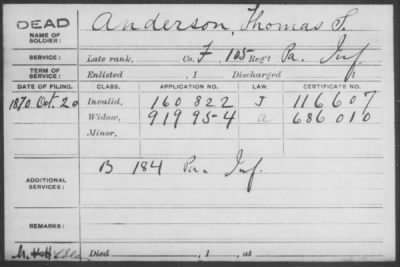 DEAD
NAME OF SOLDIER: Anderson, Thomas S.
SERVICE: Late rank, Co. F, 105 Reg't Pa. Inf
TERM OF SERVICE: Enlisted , 1 Discharged , 1
DATE OF FILING. CLASS. APPLICATION NO. LAW. CERTIFICATE NO.
1870 Oct. 20 Invalid, 160822 J 116607
Widow, 91995-4 a 686010
Minor,
ADDITIONAL SERVICES: B 184 Pa. Inf.
REMARKS:
Died , 1 , at